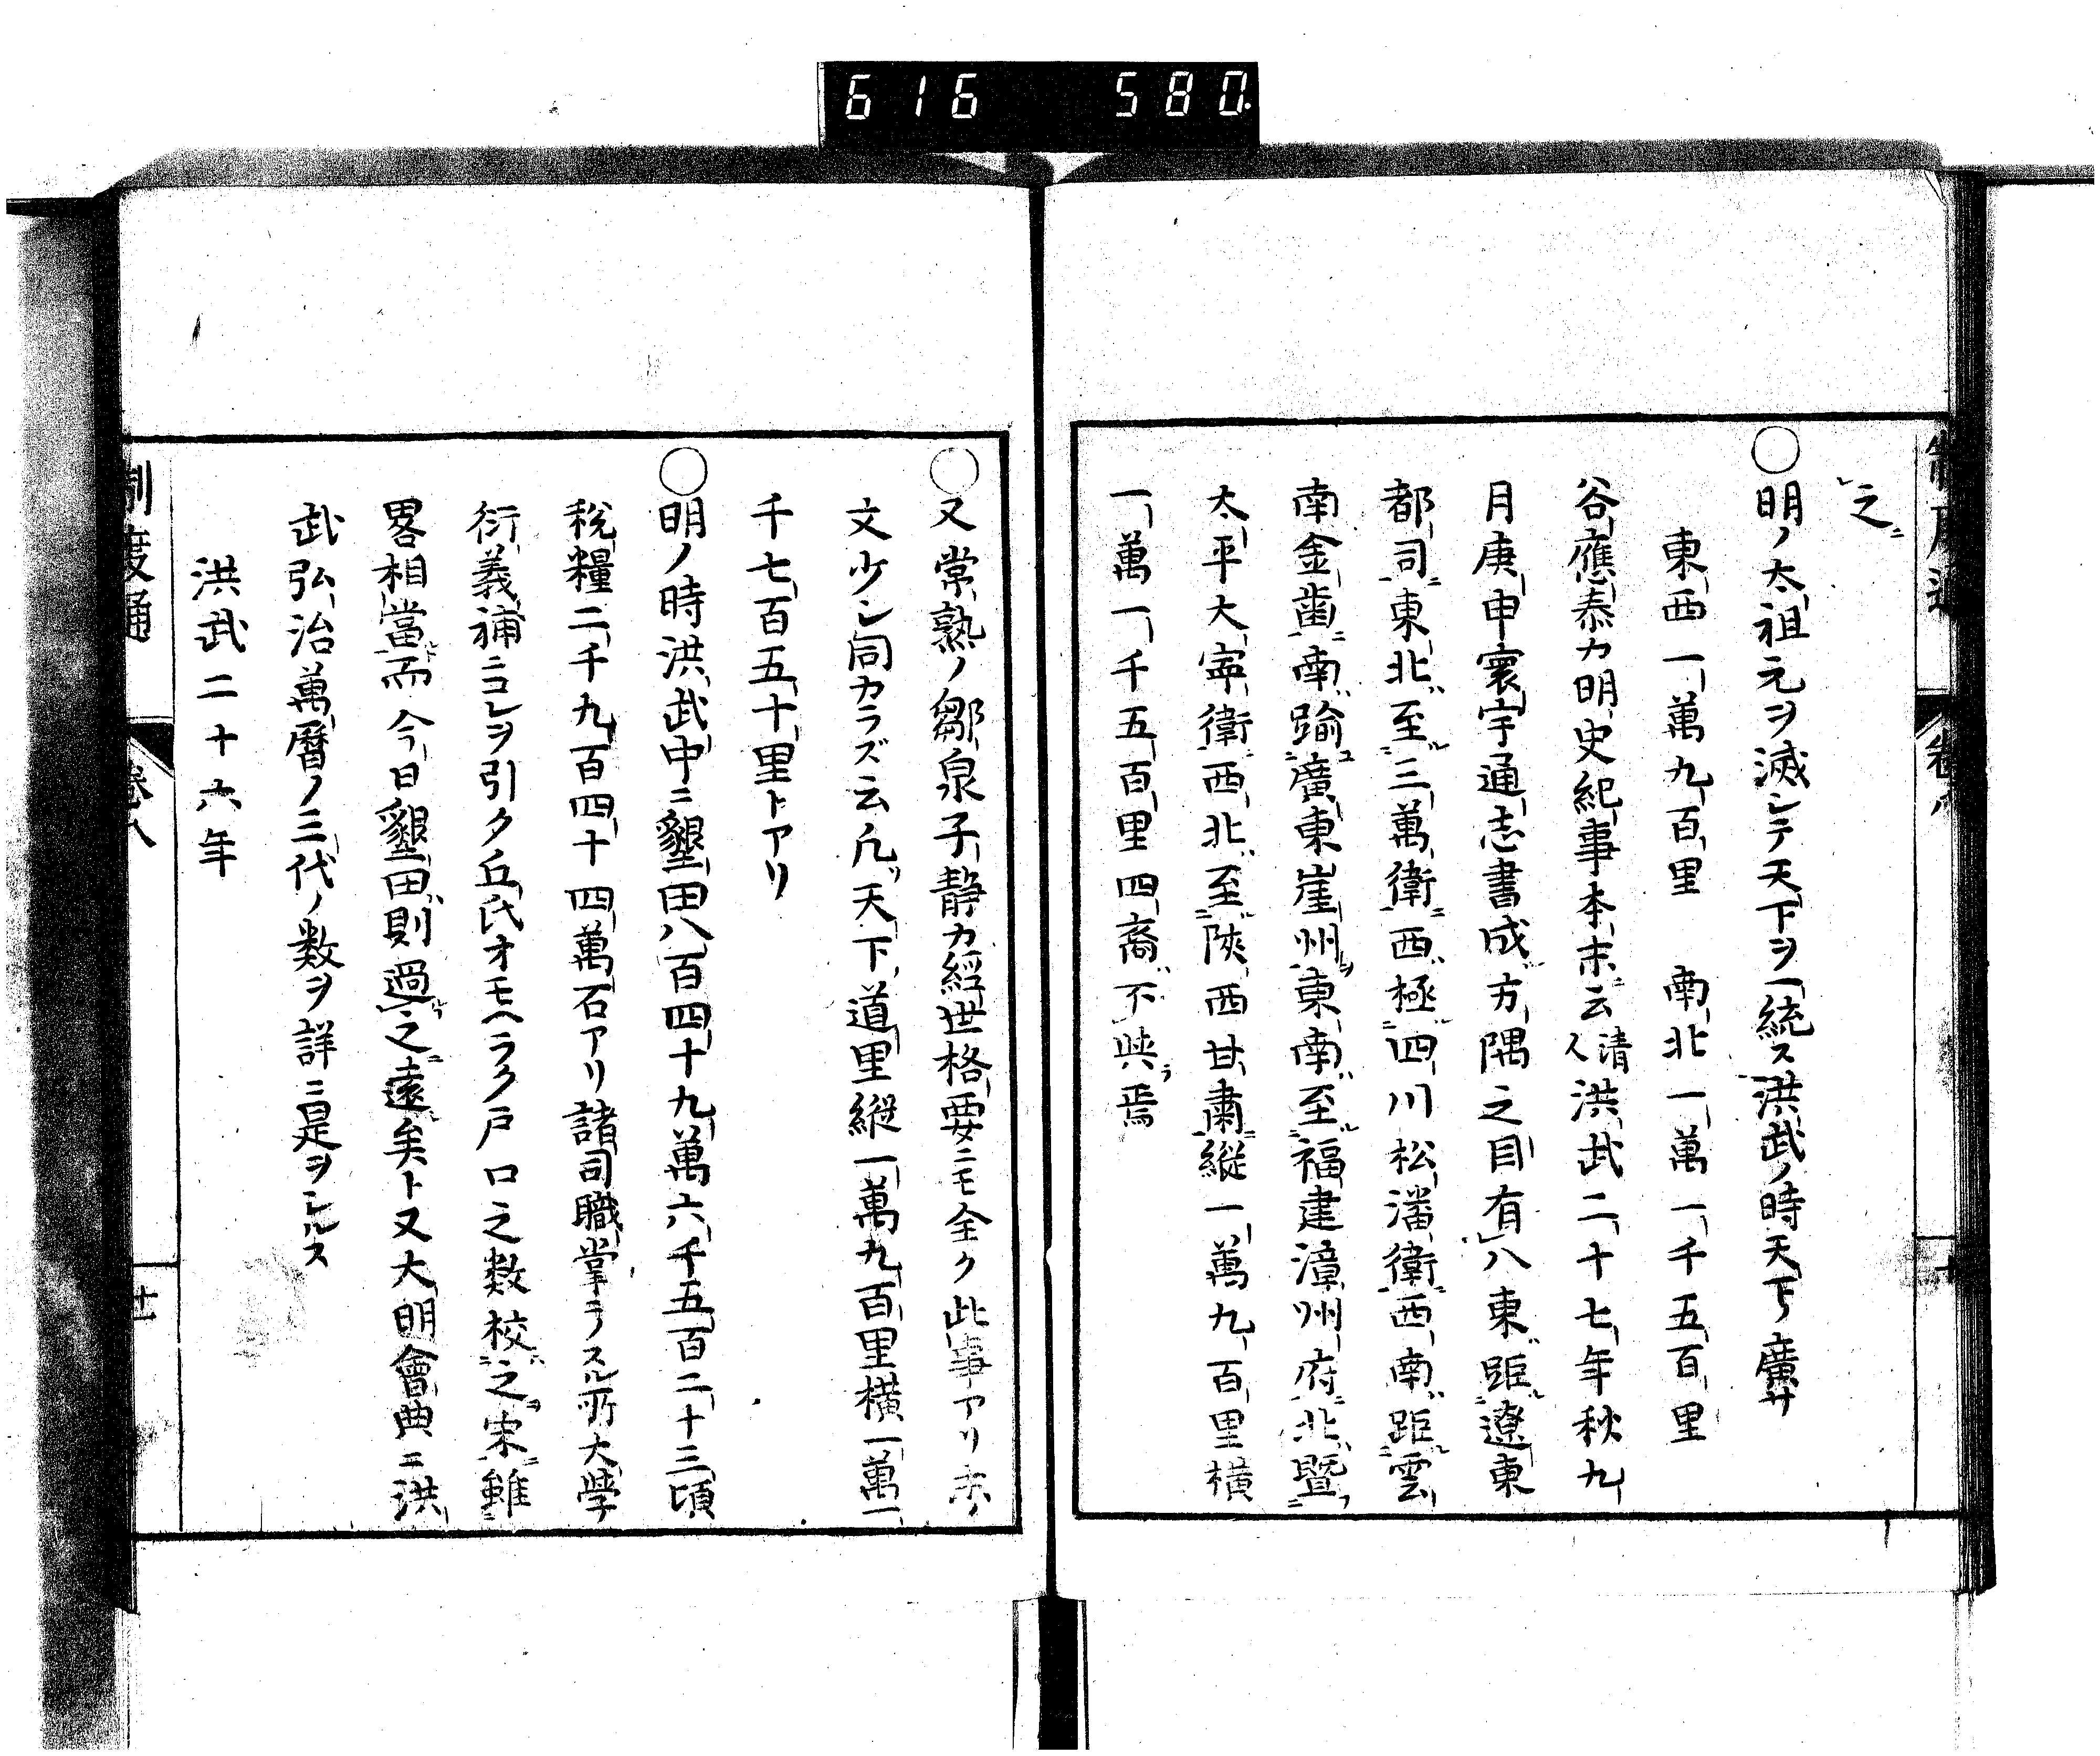 616 580
之
〇明ノ太祖元ヲ滅シテ天下ヲ一統ス洪武ノ時天下ノ廣サ
東西一萬九百里 南北一萬一千五百里
谷應泰カ明史紀事本末云清人洪武二十七年秋九
月庚申寰宇通志書成方隅之目有八東距遼東
都司東北至三萬衛西極四川松潘衛西南距雲
南金齒南踰廣東崖州東南至福建漳州府北曁
太平大寧衛西北至陝西甘肅縱一萬九百里橫
一萬一千五百里四裔不與焉
〇又常熟ノ鄒泉子靜カ經世格要ニモ全ク此事アリ亦
文少シ同カラズ云凡天下道里縱一萬九百里橫一萬一
千七百五十里トアリ
〇明ノ時洪武中ニ墾田八百四十九萬六千五百二十三頃
稅糧二千九百四十四萬石アリ諸司職掌ラスル所大學
衍義補ニコレヲ引ク丘氏オモヘラク戸口之数校之宋雖
畧相當而今日墾田則過之遠矣ト又大明會典ニ洪
武弘治萬曆ノ三代ノ数ヲ詳ニ是ヲシルス
洪武二十六年
制度通 卷八 廿一